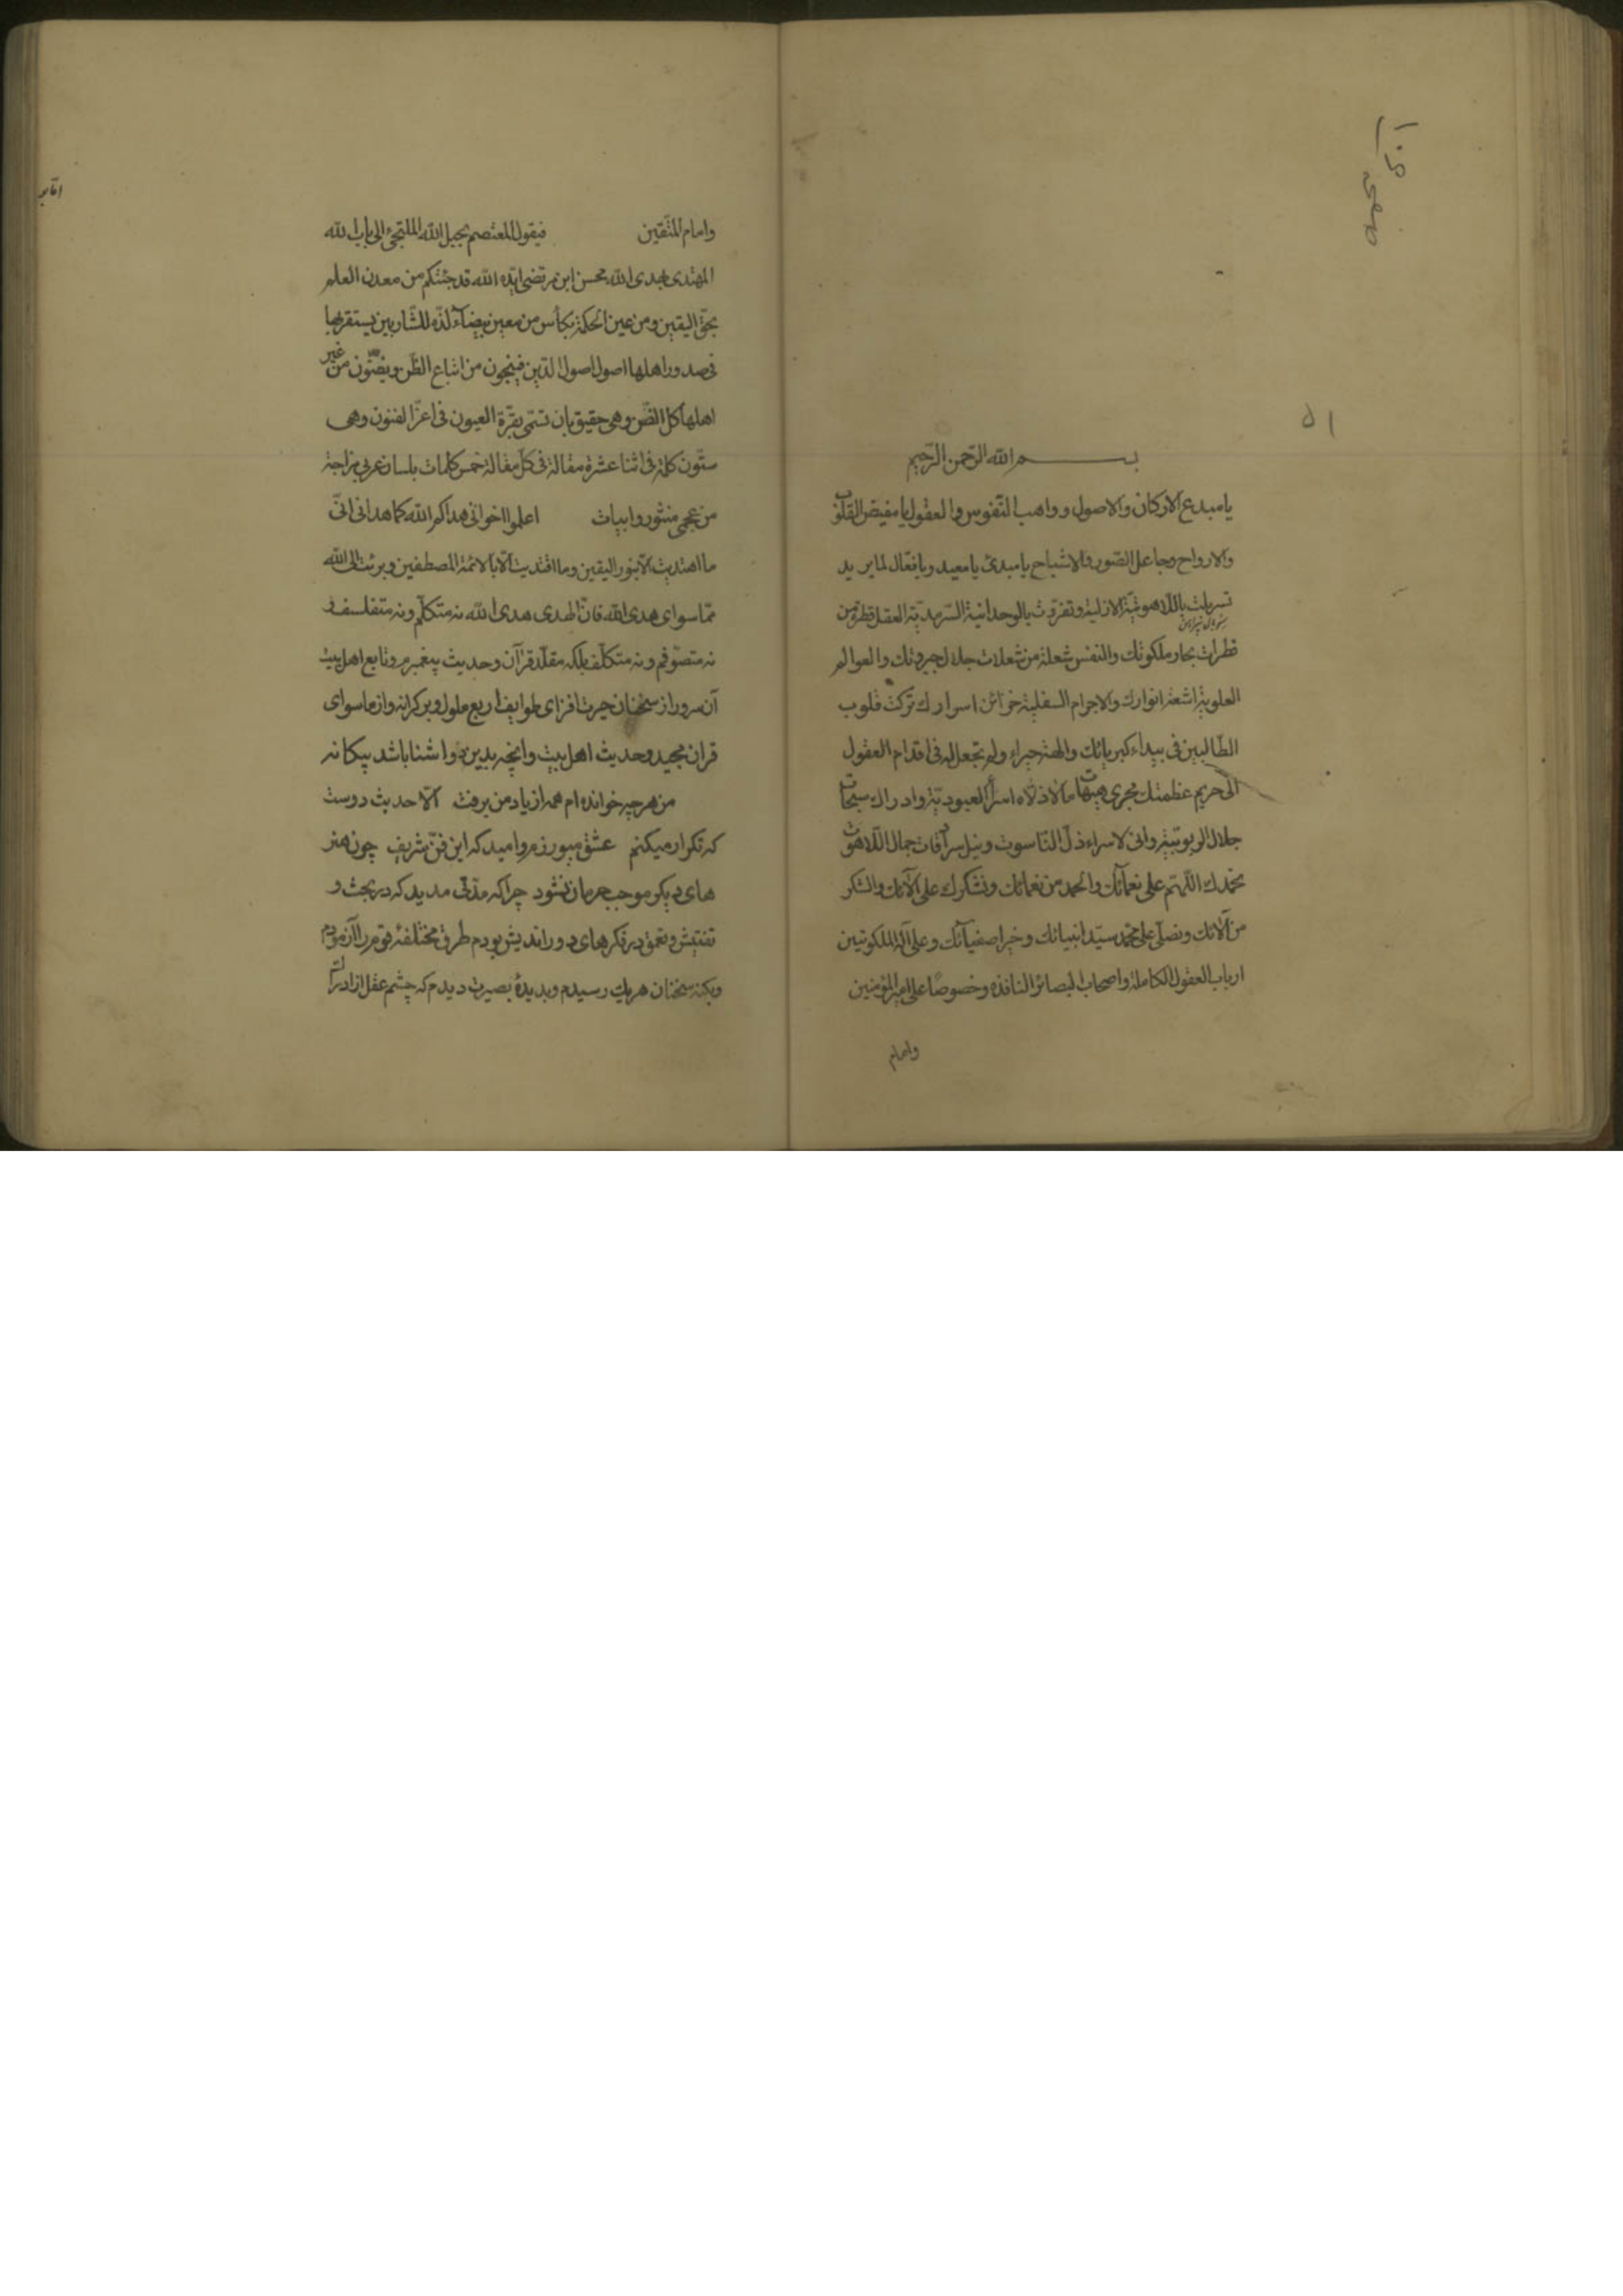 بسم الله الرحمن الرحيم
يا مبدع الاركان والاصول و واهب النفوس والعقول يا مفيض القلوب
والارواح وجاعل الصور والاشباح يا مبدئ يا معيد ويا فعال لما يريد
تسربلت باللاهوتية الازلية وتفردت بالوحدانية السرمدية العقل قطرة من
قطرات بحار ملكوتك والنفس شعلة من شعلات جلال جبروتك والعوالم
العلوية اشعة انوارك والاجرام السفلية خزائن اسرارك تركت قلوب
الطالبين فى بيداء كبريائك والهة حيراء ولم تجعل له فى اقدام العقول
الى حريم عظمتك مجرى هيهات ما لاذلاء اسراء العبودية وادراك سبحات
جلال الربوبية وانى لاسراء ذل الناسوت ونيل سرادقات جمال اللاهوت
نحمدك اللهم على نعمائك والحمد من نعمائك ونشكرك على آلائك والشكر
من آلائك ونصلى على محمد سيد انبيائك وخير اصفيائك وعلى آله الملكوتيين
ارباب العقول الكاملة واصحاب البصائر النافذه وخصوصا على امير المؤمنين
وامام
وامام المتقين فيقول المعتصم بحبل الله الملتجئ الى باب الله
المهتدى بهدى الله محسن ابن مرتضى ايده الله قد جئتكم من معدن العلم
بحق اليقين ومن عين الحكمة بكأس من معين بيضاء لذة للشاربين يستقر بها
فى صدور اهلها اصول اصول الدين فينجون من اتباع الظن ويضنون من غير
اهلها كل الضن وهى حقيق بان تسمى بقرة العيون فى اعز الفنون وهى
ستون كلمة فى اثنا عشرة مقالة فى كل مقالة خمس كلمات بلسان عربى مزاجه
من عجمى منثور وابيات اعلموا اخوانى هداكم الله كما هدانى انى
ما اهتديت الا بنور اليقين وما اقتديت الا بالائمة المصطفين وبرئت الى الله
مما سوى هدى الله فان الهدى هدى الله نه متكلم و نه متفلسف و
نه متصوفم و نه متكلف بلكه مقلد قرآن وحديث پيغمبرم و تابع اهل بيت
آن سرور از سخنان حيرت افزاى طوايف اربع ملول و بركرانه و از ماسواى
قران مجيد و حديث اهل بيت وانچه بدين دو اشنا باشد بيكانه
من هر چه خوانده ام همه از ياد من برفت الا حديث دوست
كه تكرار ميكنم عشق ميورزم و اميد كه اين فن شريف چون هنر
هاى ديكر موجب حرمان نشود چرا كه مدتى مديد كه در بحث و
تفتيش و تعمق در فكرهاى دور انديش بودم طرق مختلفۀ قوم را آزمودم
و بكنه سخنان هر يك رسيدم و بديدۀ بصيرت ديدم كه چشم عقل از ادراك